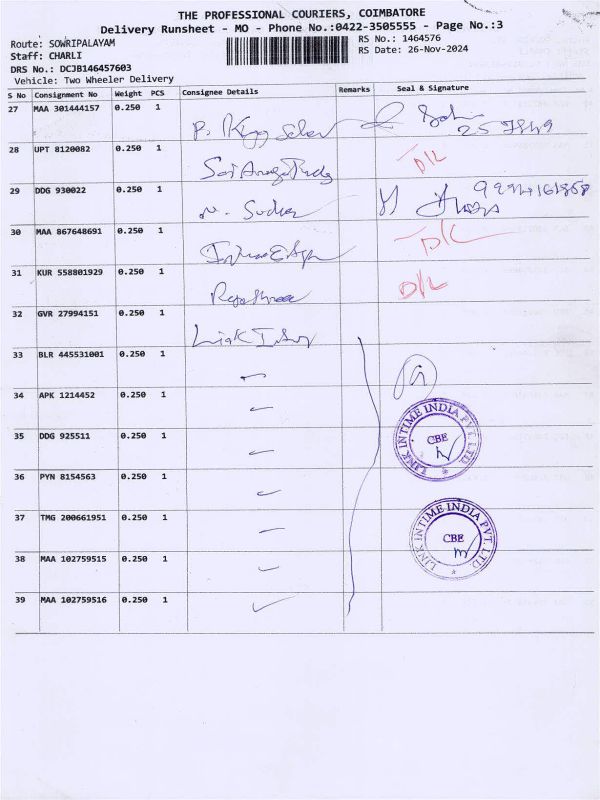 THE PROFESSIONAL COURIERS, COIMBATORE
Delivery Runsheet - MO - Phone No.:0422-3505555 - Page No.:3
Route: SOWRIPALAYAM
RS No.: 1464576
Staff: CHARLI
RS Date: 26-Nov-2024
DRS No.: DCJB146457603
Vehicle: Two Wheeler Delivery
S No Consignment No Weight PCS Consignee Details Remarks Seal & Signature
27 MAA 301444157 0.250 1
28 UPT 8120082 0.250 1 D/L
29 DDG 930022 0.250 1 N. Sudha
30 MAA 867648691 0.250 1 D/L
31 KUR 558801929 0.250 1 D/L
32 GVR 27994151 0.250 1 Link
33 BLR 445531001 0.250 1
34 APK 1214452 0.250 1
LINK INTIME INDIA PVT. LTD.
CBE
35 DDG 925511 0.250 1
36 PYN 8154563 0.250 1
37 TMG 200661951 0.250 1
LINK INTIME INDIA PVT. LTD
CBE
38 MAA 102759515 0.250 1
39 MAA 102759516 0.250 1